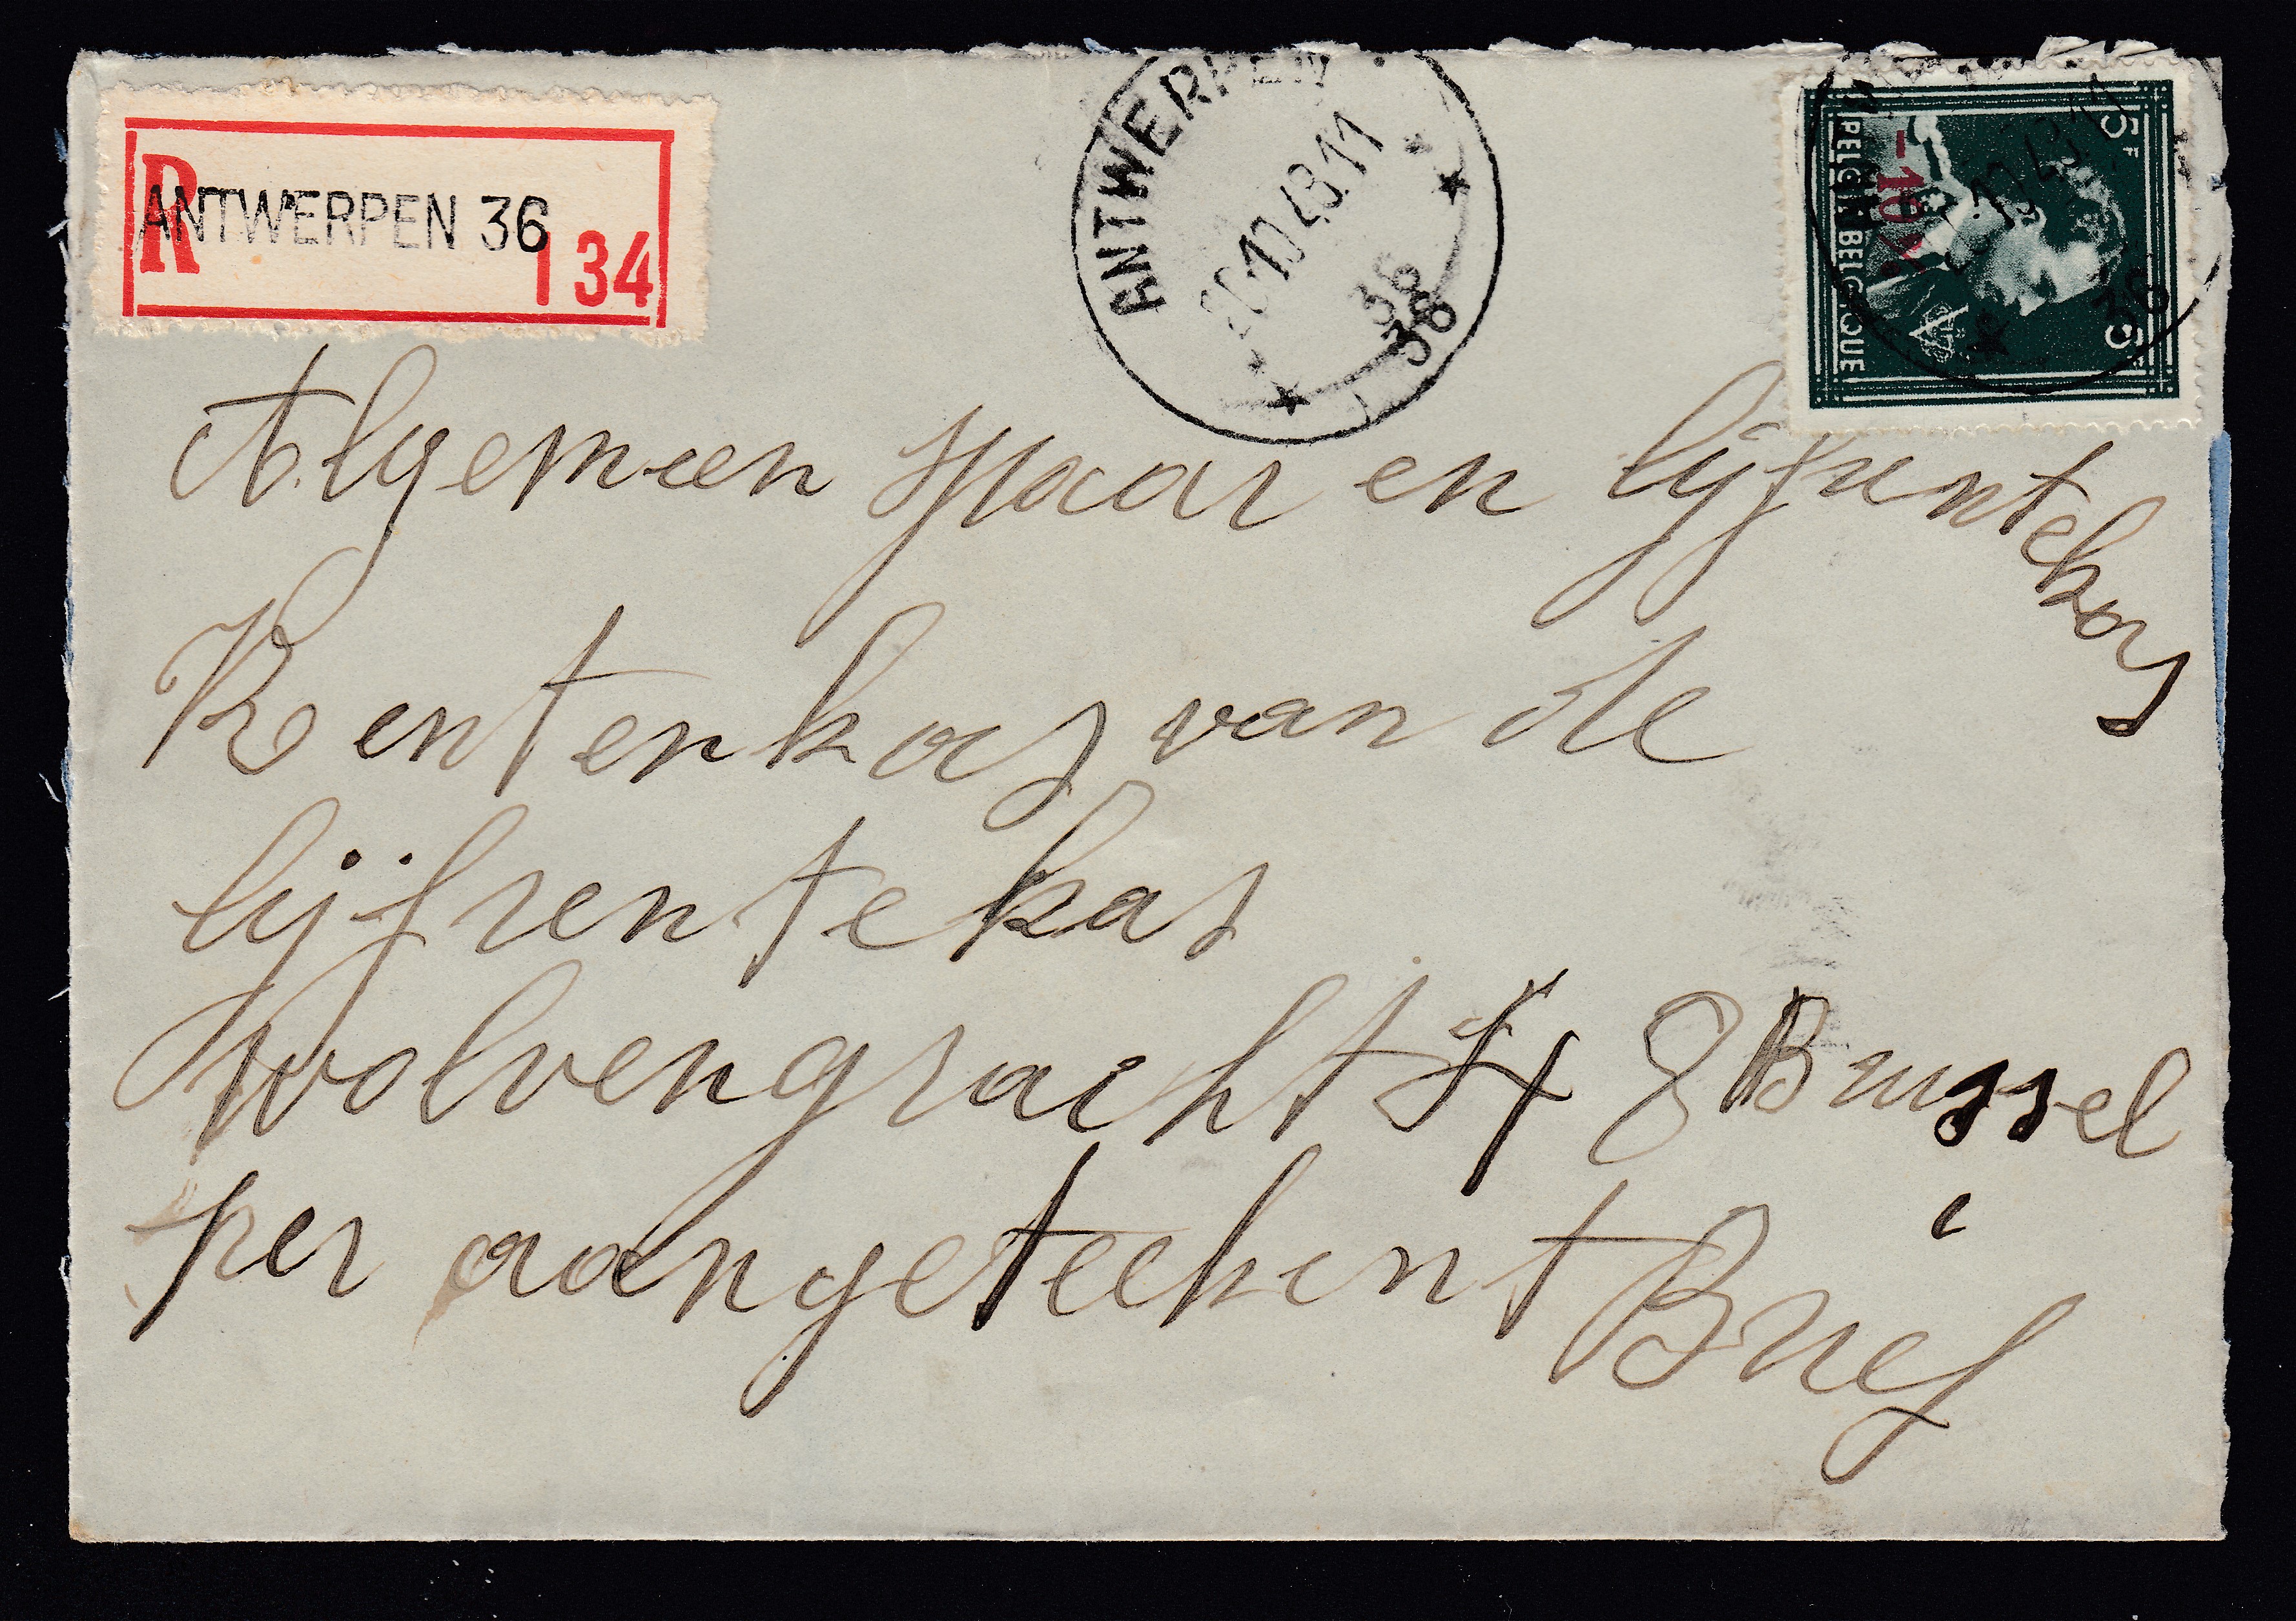 R
ANTWERPEN 36
134
ANTWERPEN
20.10.48.11
36
36
5F
5F
-10%
BELGIE BELGIQUE
36
Algemeen spaar en lijfrentekas
Rentenkas van de
lijfrentekas
Wolvengracht 48 Brussel
per aangeteekent Brief